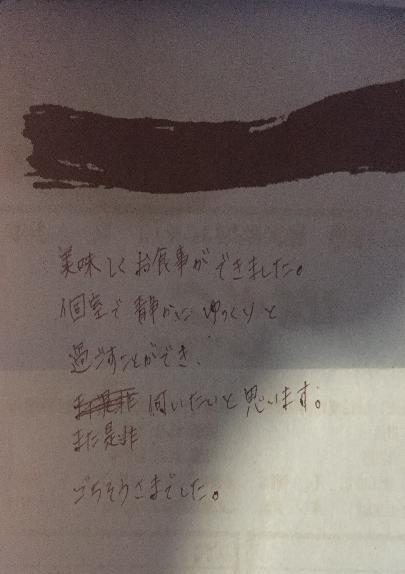 美味しくお食事ができました。
個室で静かにゆっくりと
過ごすことができ、
また是非 伺いたいと思います。
また是非
ごちそうさまでした。